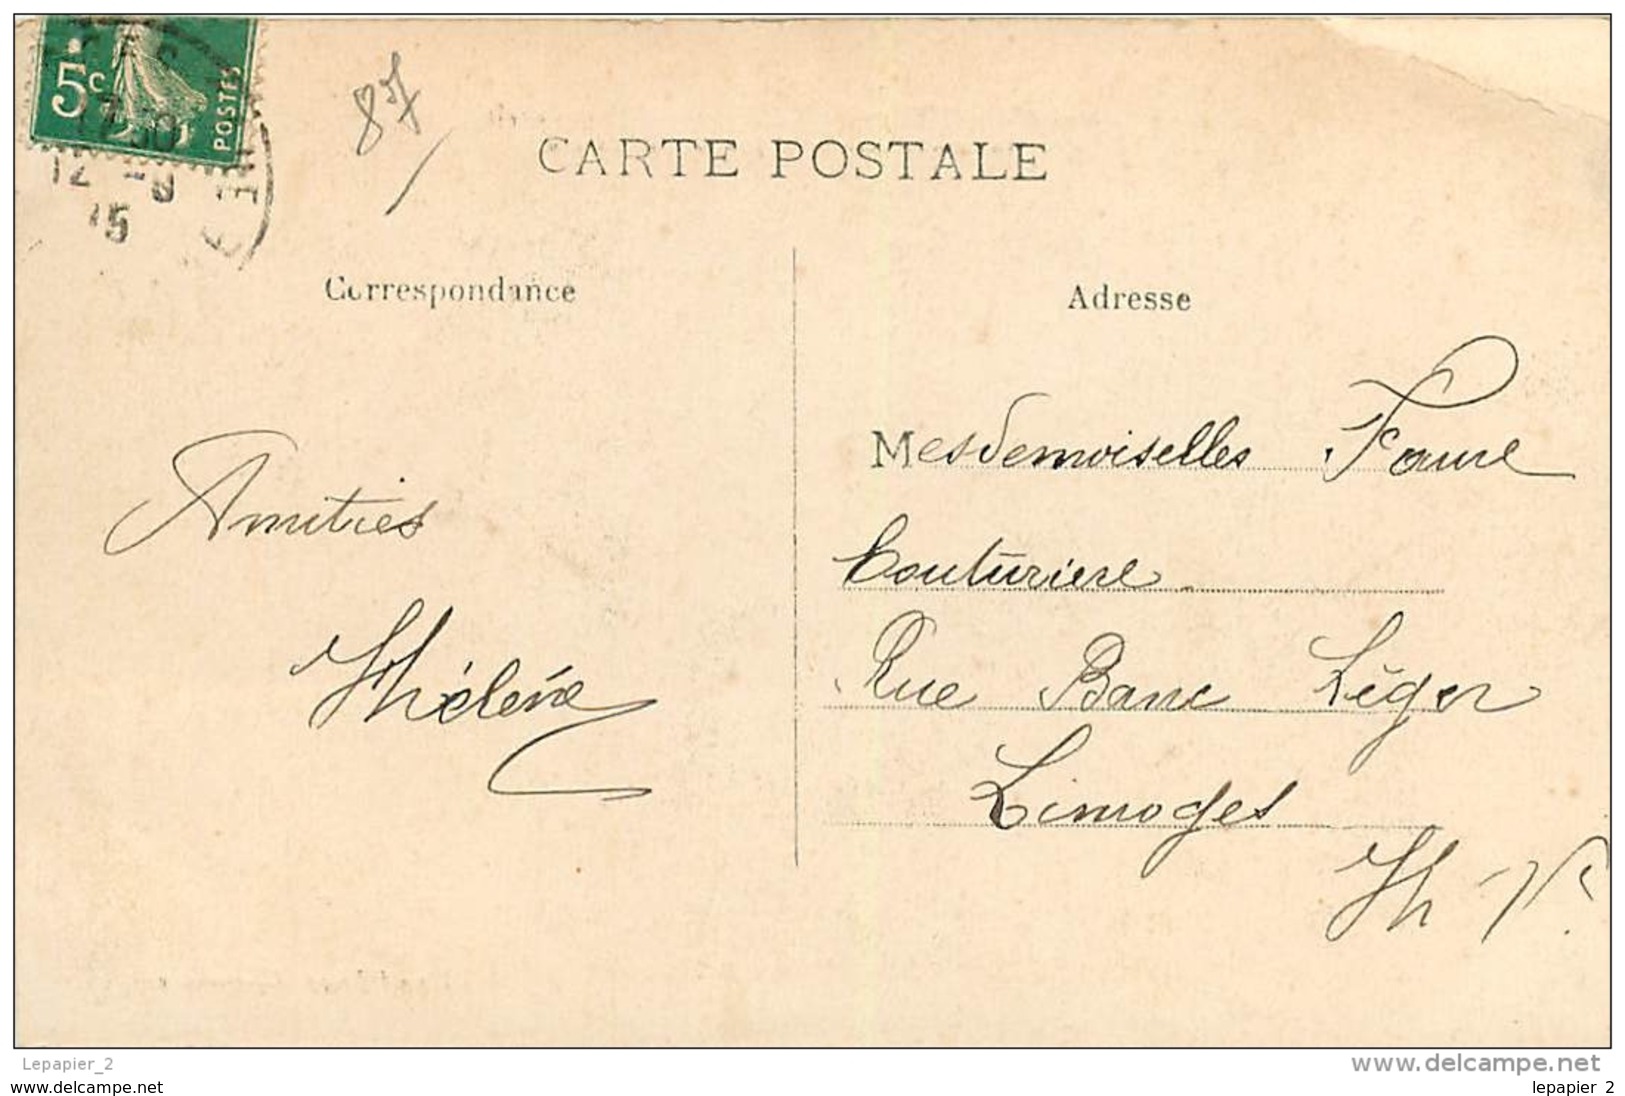 5c
POSTES
12 -9
15
87
CARTE POSTALE
Correspondance
Amitiés
Hélène
Adresse
Mesdemoiselles Faure
Couturiere
Rue Banc Léger
Limoges
Hte-Ve
Lepapier_2
www.delcampe.com
www.delcampe.net
lepapier_2